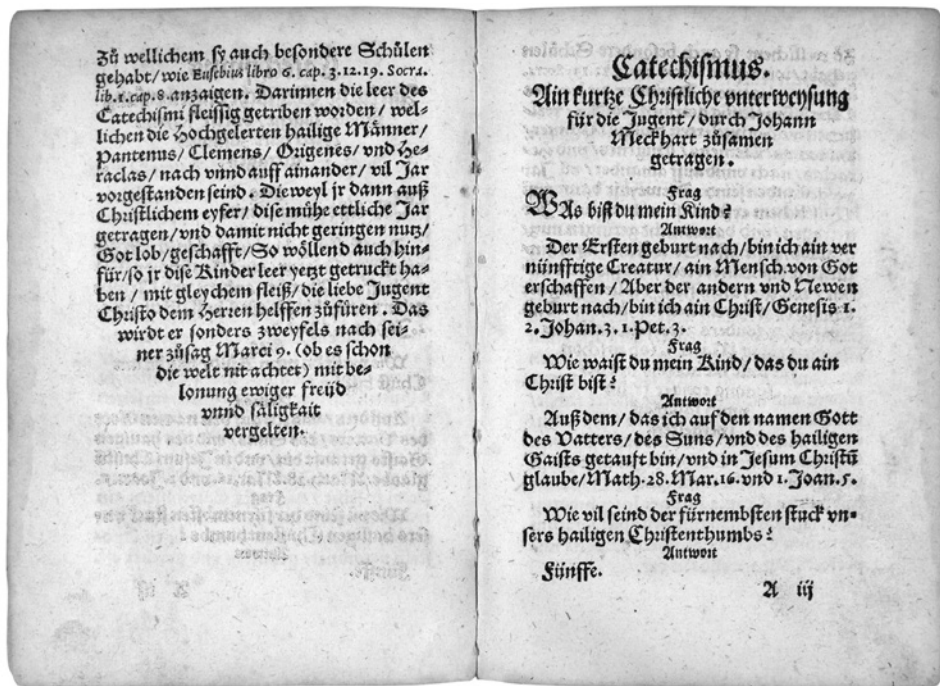 Zů wellichem sy auch besondere Schůlen
gehabt/ wie Eusebius libro 6. cap. 3. 12. 19. Socra.
lib. 1. cap. 8. anzaigen. Darinnen die leer des
Catechismi fleissig getriben worden/ wel-
lichen die Hochgelerten hailige Männer/
Pantenus/ Clemens/ Origenes/ vnd He-
raclas/ nach vnnd auff ainander/ vil Jar
vorgestanden seind. Die weyl jr dann auß
Christlichem eyfer/ dise mühe ettliche Jar
getragen/ vnd damit nicht geringen nutz/
Got lob/ geschafft/ So wöllend auch hin-
für/ so jr dise Kinder leer yetzt getruckt ha-
ben/ mit gleychem fleiß/ die liebe Jugent
Christo dem Herren helffen zůfüren. Das
wirdt er sonders zweyfels nach sei-
ner zůsag Marci 9. (ob es schon
die welt nit achtet) mit be-
lonung ewiger freüd
vnnd säligkait
vergelten.
Catechismus.
Ain kurtze Christliche vnterweysung
für die Jugent/ durch Johann
Meckhart zůsamen
getragen.
Frag
WAs bist du mein Kind?
Antwort
Der Ersten geburt nach/ bin ich ain ver
nünfftige Creatur/ ain Mensch von Got
erschaffen/ Aber der andern vnd Newen
geburt nach/ bin ich ain Christ/ Genesis 1.
2. Johan. 3. 1. Pet. 3.
Frag
Wie waist du mein Kind/ das du ain
Christ bist?
Antwort
Auß dem/ das ich auf den namen Gott
des Vatters/ des Suns/ vnd des hailigen
Gaists getauft bin/ vnd in Jesum Christū
glaube/ Math. 28. Mar. 16. vnd 1. Joan. 5.
Frag
Wie vil seind der fürnembsten stuck vn-
sers hailigen Christenthumbs?
Antwort
Fünffe.
A iij